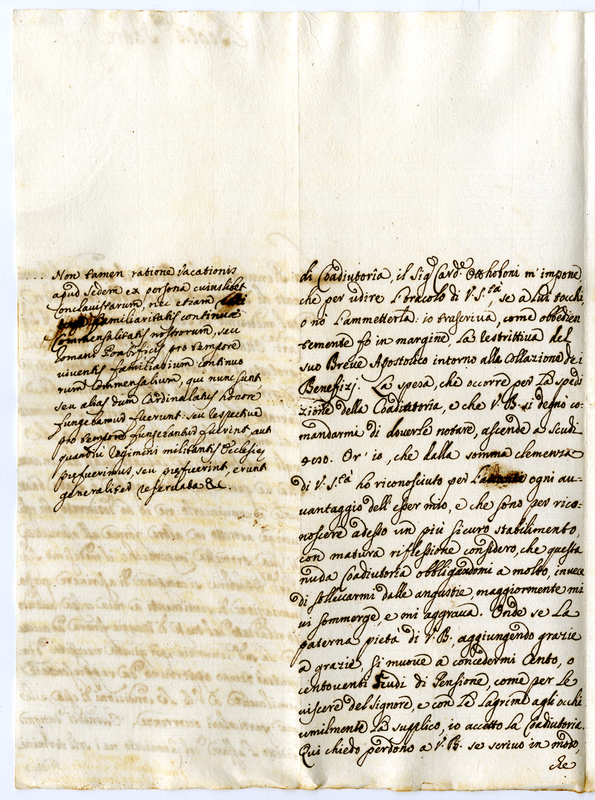 Non tamen ratione vacationis
apud sedem ex persona cuiuslibet
Conclavistarum, nec etiam
familiaritatis continuæ
Commensalitatis nostrorum, seu
Romani Pontificis pro tempore
viventis familiarium continuo
rum Commensalium, qui nunc sunt,
seu alias dum Cardinalatus honore
fungebamur fuerunt: seu respective
pro tempore fungentium fuerint aut
quamdiu regimini militantis Ecclesiæ
præfuerimus, seu præfuerint, erunt
generaliter reservata &c.
di Coadiutoria, il Sig.r Card.l Otthoboni m'impone
che per udire l'oracolo di V. S.tà, se a lui tocchi,
o nò l'ammetterla: io trascriva, come obbedien
temente fò in margine la restrittiva del
suo Breve Apostolico intorno alla Collazione dei
Benefizj. La spesa, che occorre per la spedi
zione della Coadiutoria, e che V. B. si degnò co-
mandarmi di doverle notare, ascende a scudi
Or' io, che dalla somma clemenza
di V. S.tà ho riconosciuto per ogni au-
vantaggio dell'esser mio, e che sono per rico-
noscere adesso un più sicuro stabilimento,
con matura riflessione considero, che questa
nuda Coadiutoria obbligandomi a molto, invece
di sollevarmi dalle angustie, maggiormente mi
vi sommerge, e mi aggrava. Onde se la
paterna pietà di V. B., aggiungendo grazie
a grazie, si muove a concedermi Cento, o
centoventi scudi di Pensione, come per le
viscere del Signore, e con le lagrime agli occhi
umilmente la supplico, io accetto la Coadiutoria.
Qui chiedo perdono a V. B. se scrivo in modo,
che